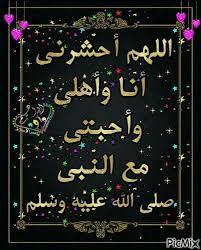 اللهم أحشرنى
أنا وأهلى
وأحبتى
مع النبى
صلى الله عليه وسلم
PicMix